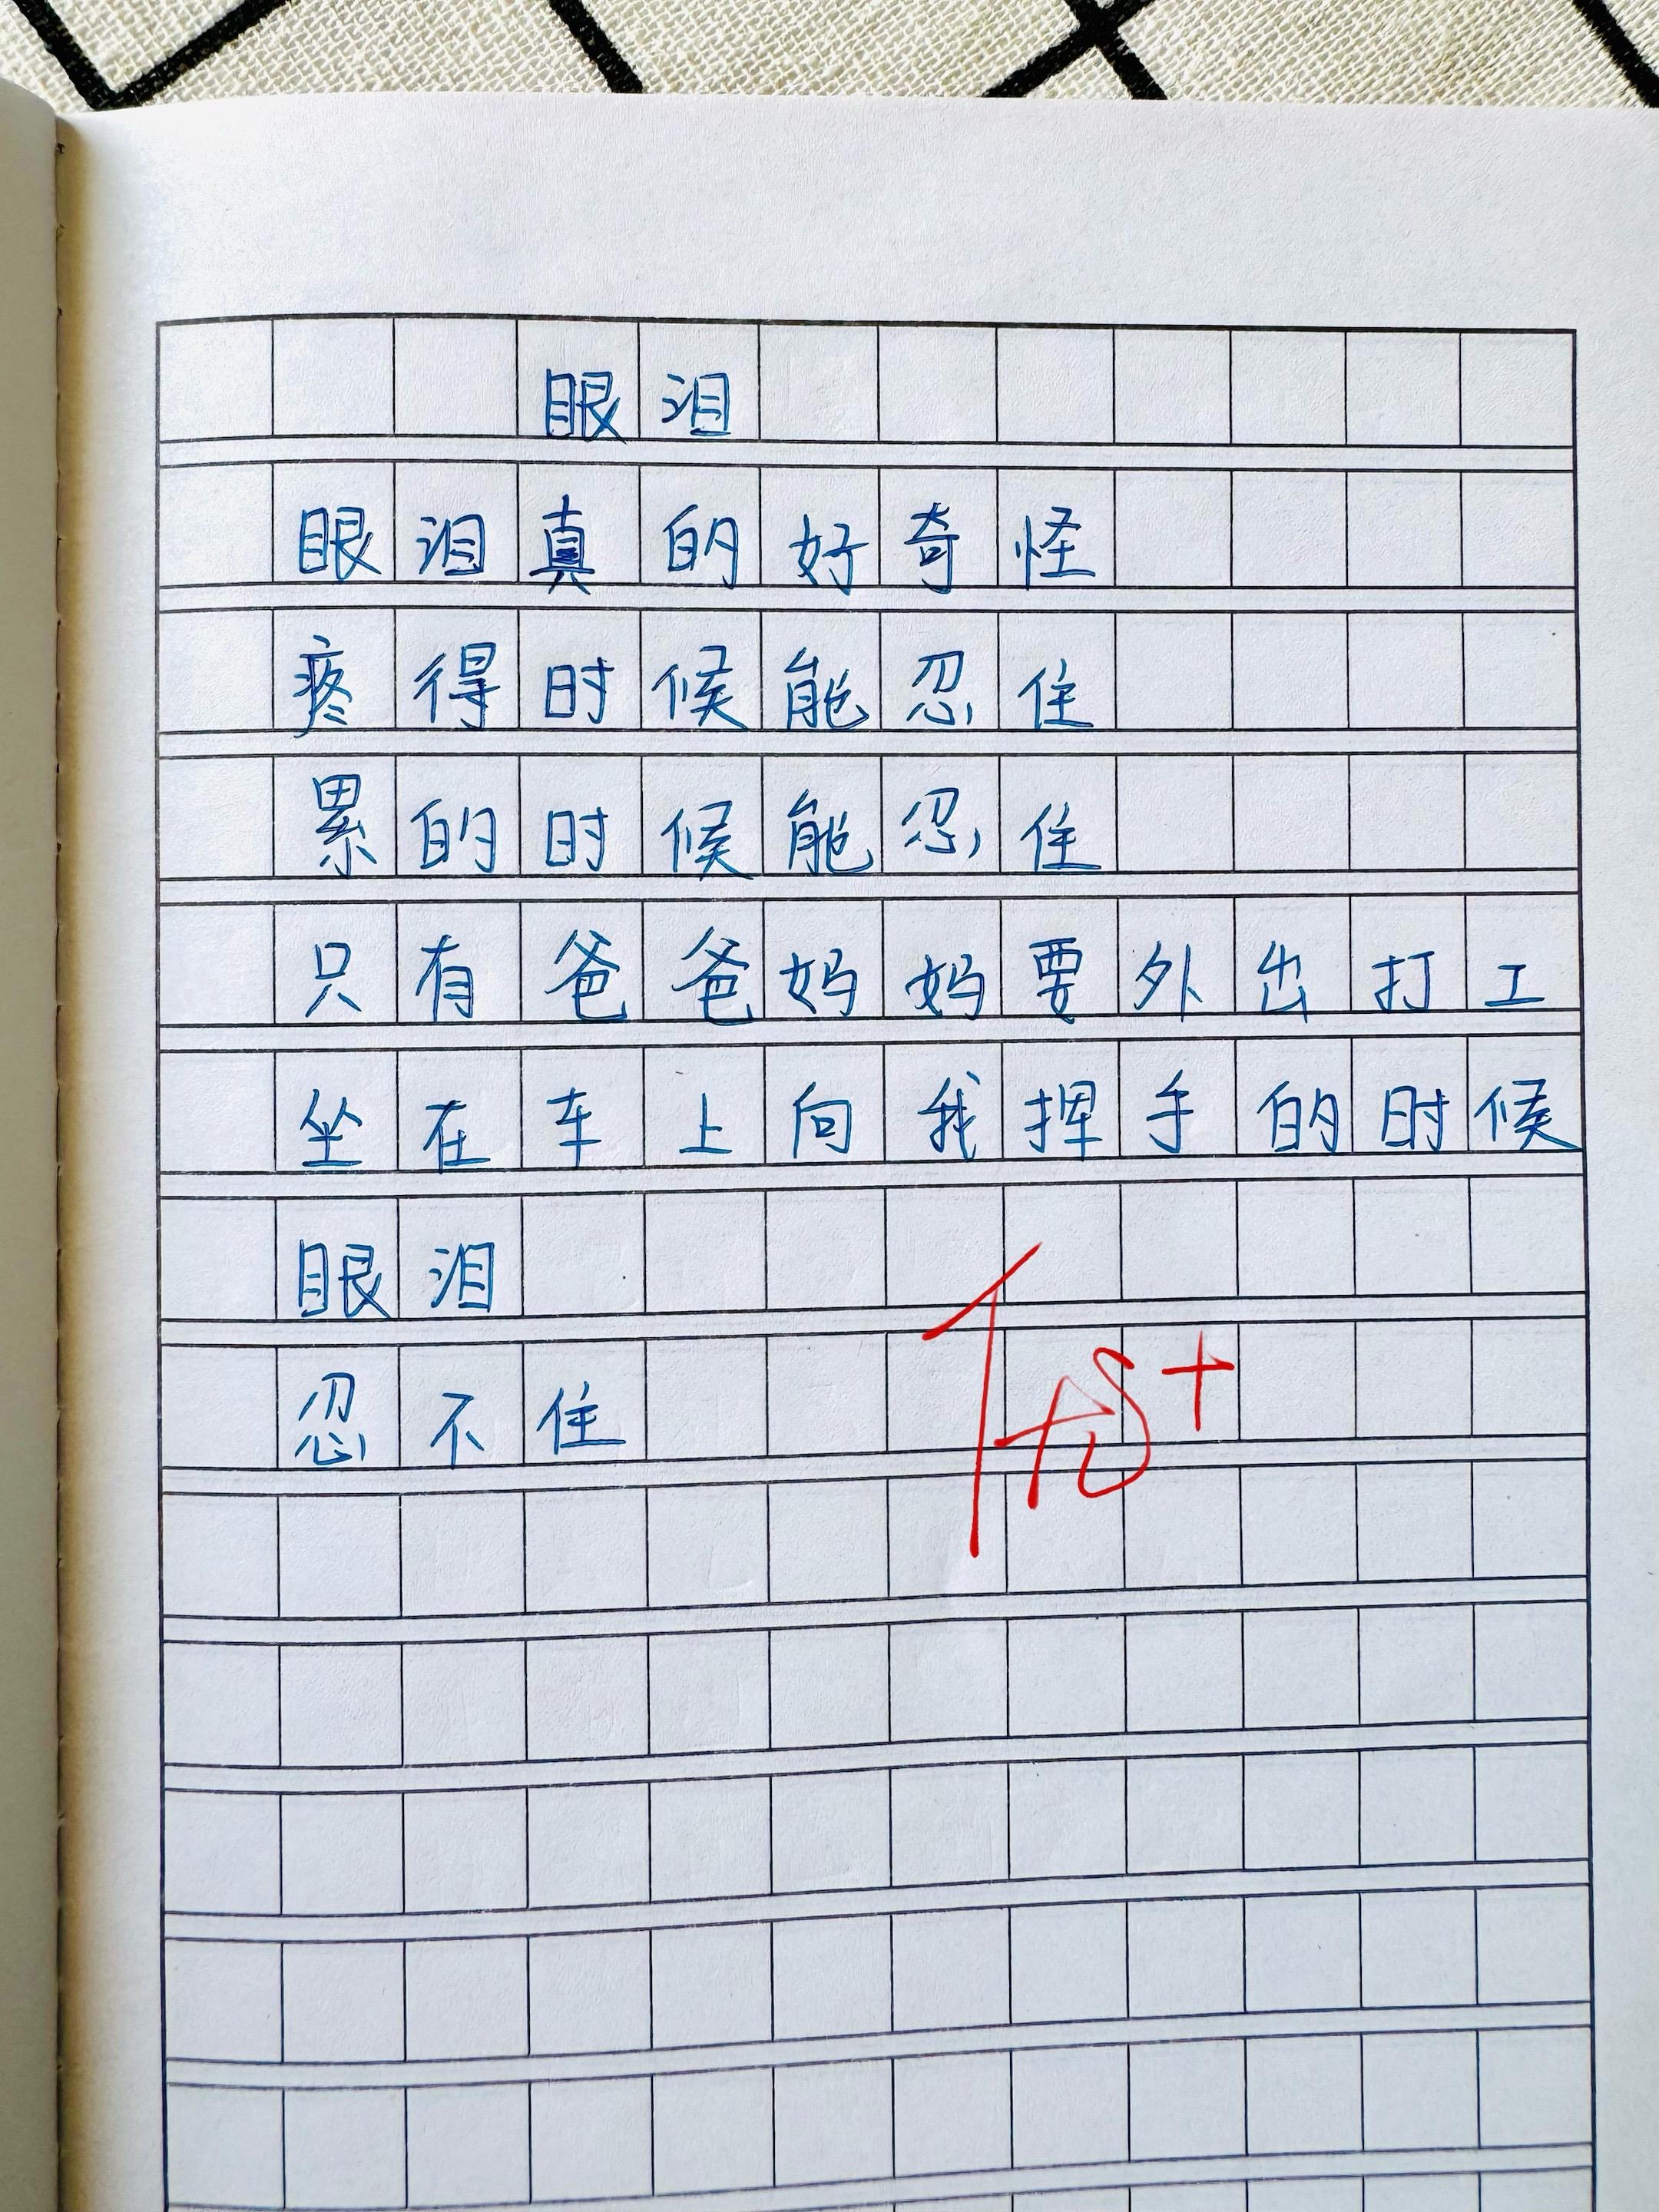 眼泪
眼泪真的好奇怪
疼得时候能忍住
累的时候能忍住
只有爸爸妈妈要外出打工
坐在车上向我挥手的时候
眼泪
忍不住
优+